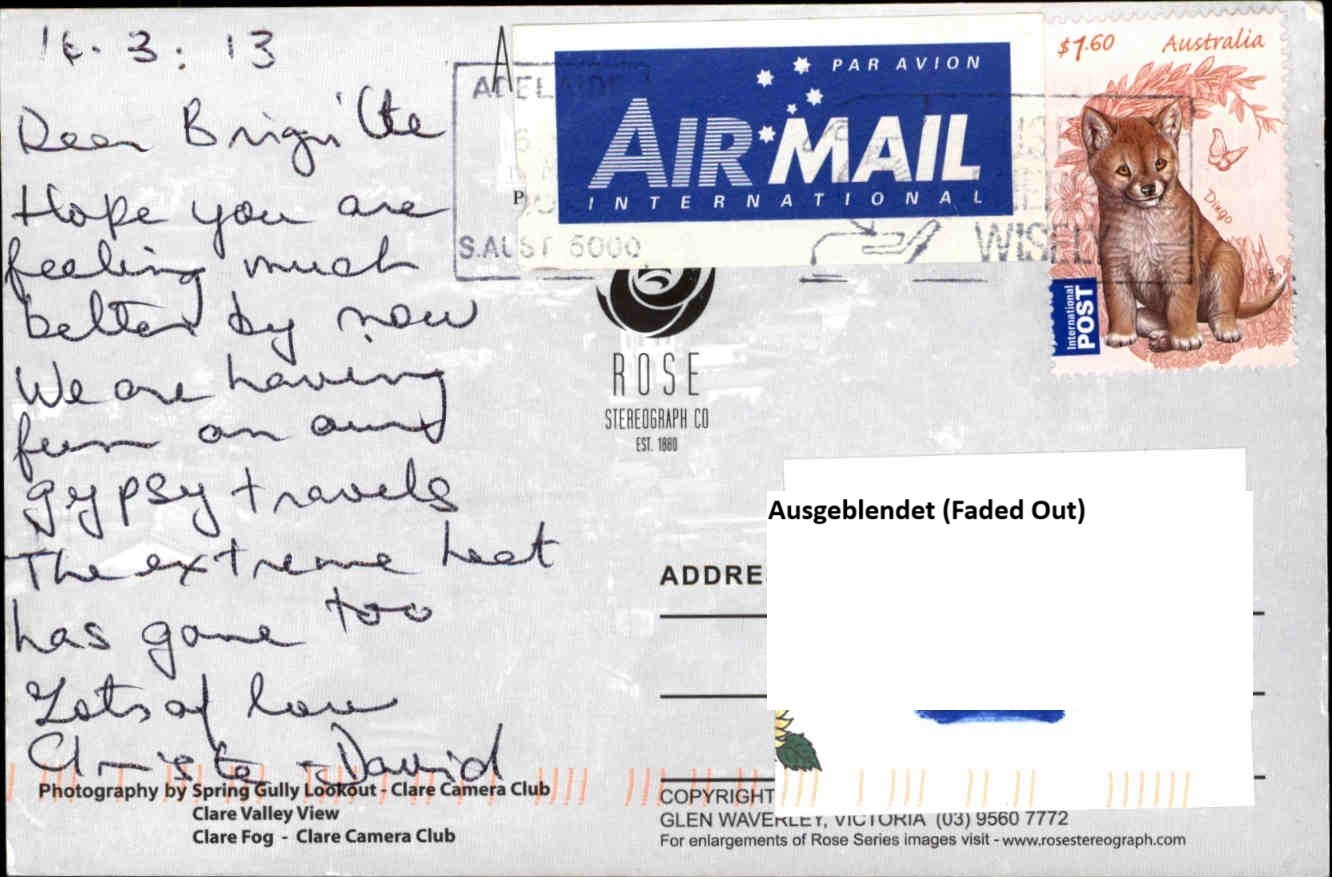 16.3.13
Dear Brigitte
Hope you are
feeling much
better by now
We are having
fun on our
gypsy travels
The extreme heat
has gone too
Lots of love
Christa + David
Photography by Spring Gully Lookout - Clare Camera Club
Clare Valley View
Clare Fog - Clare Camera Club
ADELAIDE
S.AUST 5000
PAR AVION
AIR MAIL
INTERNATIONAL
$1.60 Australia
Dingo
International
POST
ROSE
STEREOGRAPH CO
EST. 1880
Ausgeblendet (Faded Out)
ADDRE
COPYRIGHT
GLEN WAVERLEY, VICTORIA (03) 9560 7772
For enlargements of Rose Series images visit - www.rosestereograph.com